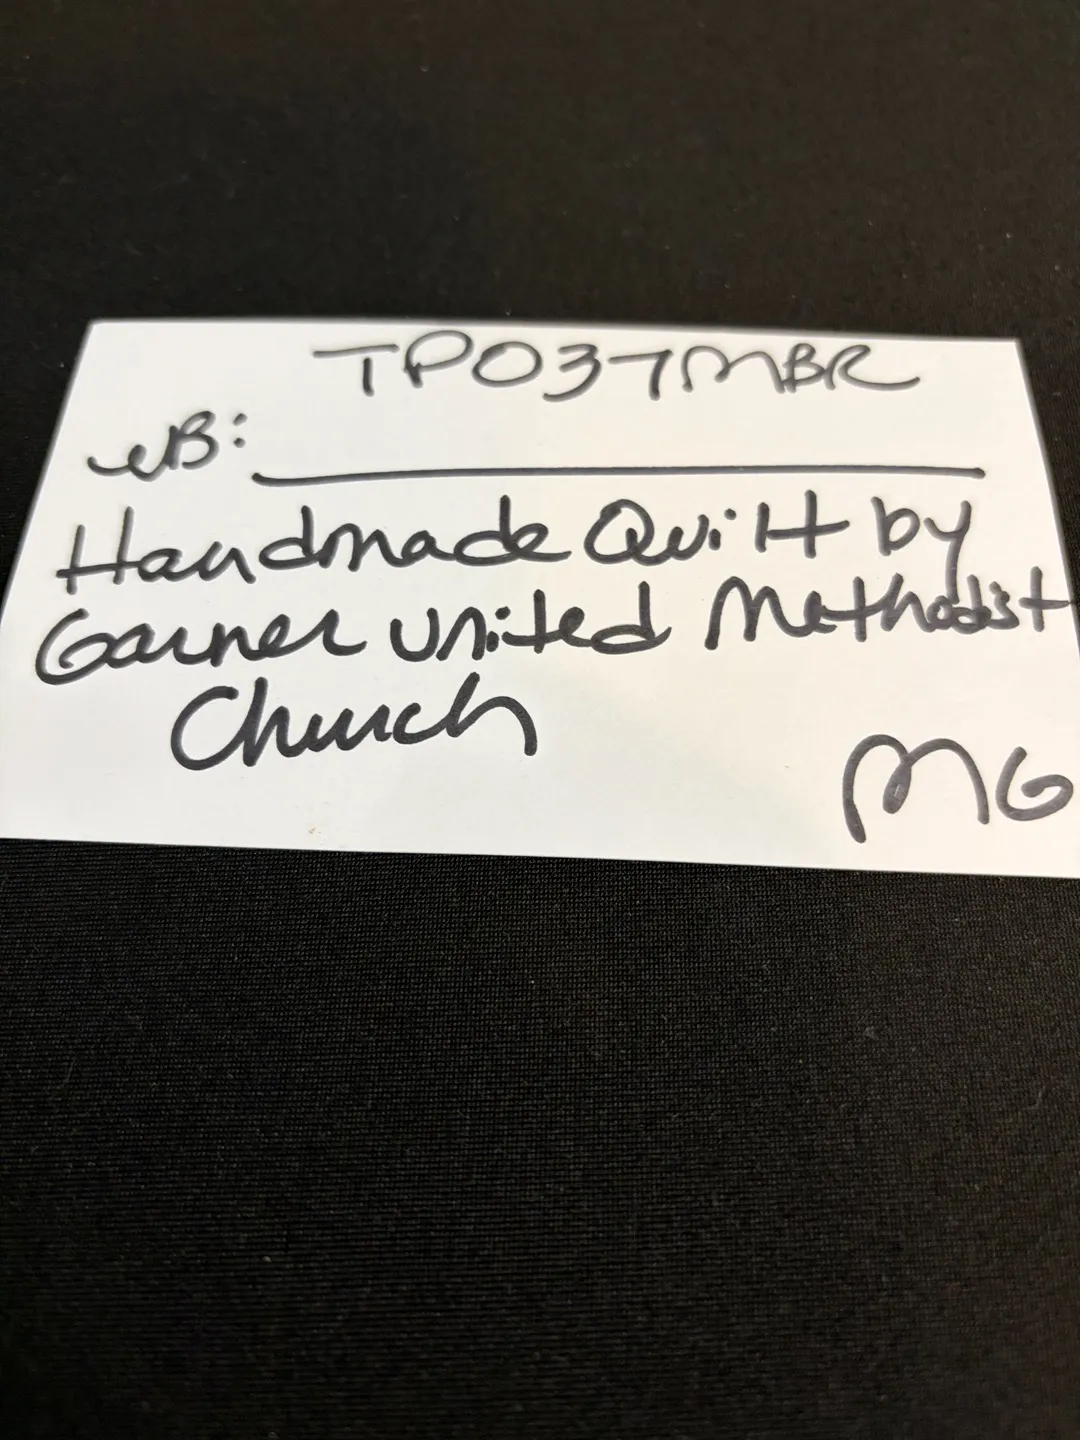 TP037MBR
WB:
Handmade Quilt by
Garner United Methodist
Church
MG